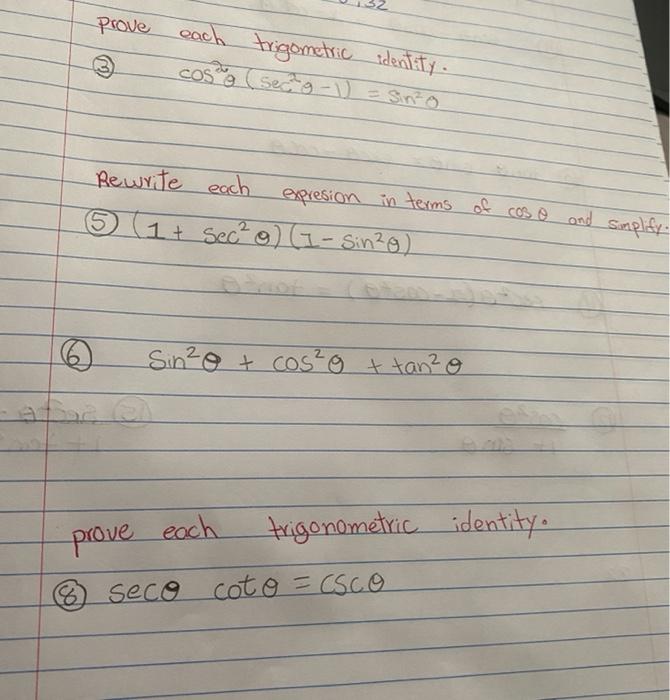 ,32
prove each trigometric identity.
③ cos²θ (sec²θ-1) = sin²θ
Rewrite each expresion in terms of cos θ and simplify.
⑤ (1 + sec²θ)(1-sin²θ)
⑥ sin²θ + cos²θ + tan²θ
prove each trigonometric identity.
⑧ secθ cotθ = cscθ